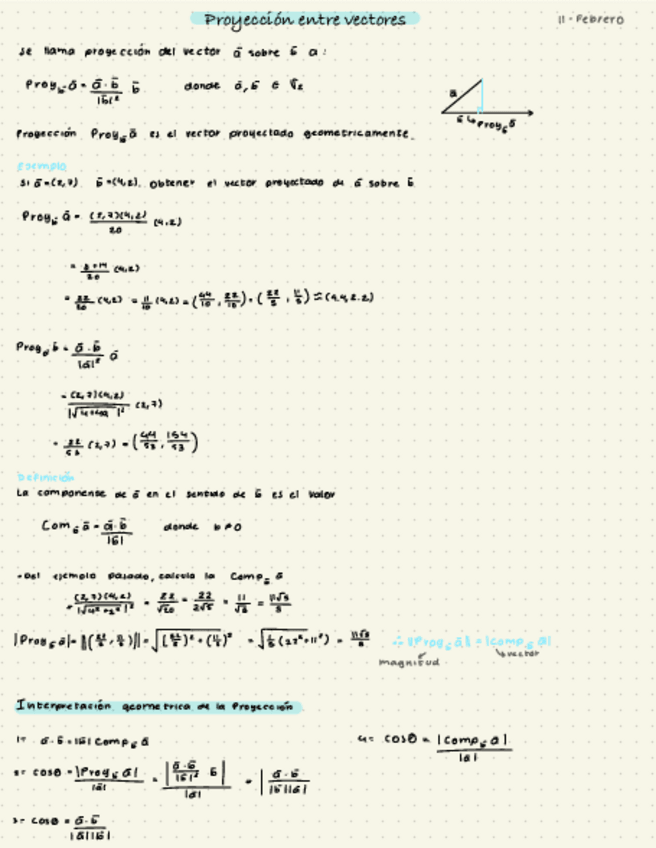 Proyección entre vectores
11 - Febrero
se llama proyección del vector ā sobre b̄ a:
Proy_b̄ ā = (ā · b̄)/|b̄|² b̄ donde ā, b̄ ∈ V₂
ā
b̄ ↳ Proy_b̄ ā
Proyección Proy_b̄ ā es el vector proyectado geometricamente.
Ejemplo
Si ā=(2,7) b̄=(4,2). Obtener el vector proyectado de ā sobre b̄
Proy_b̄ ā = (2,7)(4,2)/20 (4,2)
= 8+14/20 (4,2)
= 22/20 (4,2) = 11/10 (4,2) = (44/10, 22/10) = (22/5, 11/5) ≈ (4.4, 2.2)
Proy_ā b̄ = (ā · b̄)/|ā|² ā
= (2,7)(4,2)/|√4+49|² (2,7)
= 22/53 (2,7) = (44/53, 154/53)
Definición
La componente de ā en el sentido de b̄ es el valor
Com_b̄ ā = (ā · b̄)/|b̄| donde b ≠ 0
- Del ejemplo pasado, calcula la Comp_b̄ ā
= (2,7)(4,2)/|√4²+2²|² = 22/√20 = 22/2√5 = 11/√5 = 11√5/5
|Proy_b̄ ā| = ||(22/5, 11/5)|| = √(22/5)² + (11/5)² = √1/5 (22²+11²) = 11√5/5 ∴ ||Proy_b̄ ā|| = |Comp_b̄ ā|
magnitud vector
Interpretación geometrica de la Proyección
1= ā · b̄ = |b̄| Comp_b̄ ā
4= cosθ = |Comp_b̄ ā|/|ā|
2= cosθ = |Proy_b̄ ā|/|ā| = |(ā · b̄)/|b̄|² b̄|/|ā| = |(ā · b̄)/|b̄||ā|
3= cosθ = (ā · b̄)/|ā||b̄|